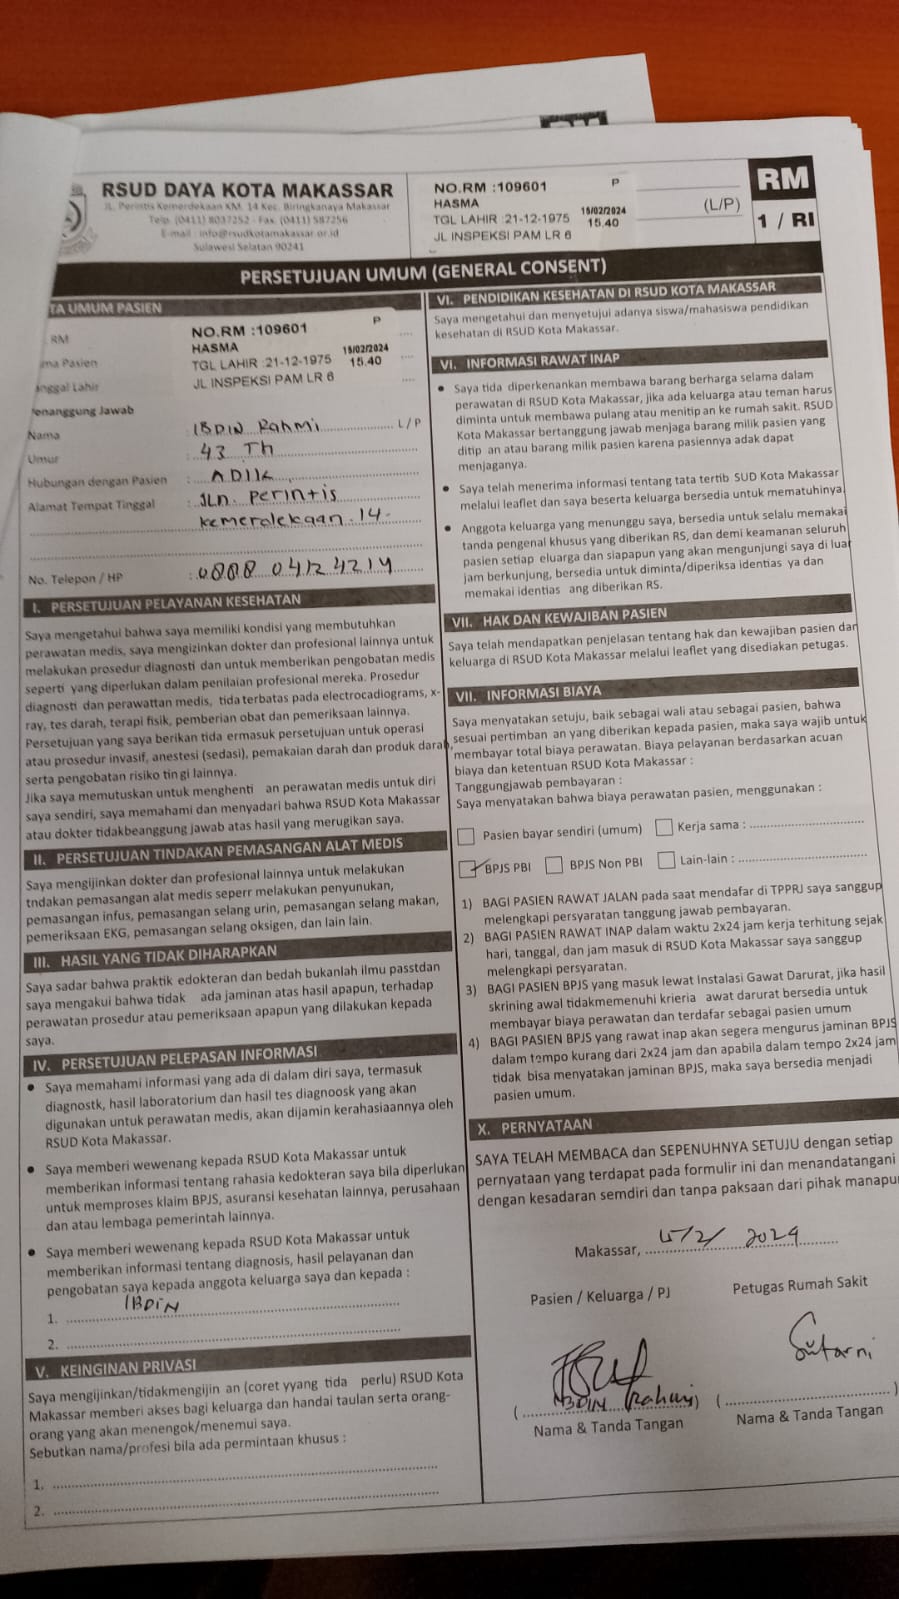 RSUD DAYA KOTA MAKASSAR
JL. Perintis Kemerdekaan KM. 14 Kec. Biringkanaya Makassar
Telp. (0411) 8037252 - Fax. (0411) 587256
E-mail : info@rsudkotamakassar.or.id
Sulawesi Selatan 90241
NO.RM :109601 P
HASMA 15/02/2024
TGL LAHIR :21-12-1975 15.40
JL INSPEKSI PAM LR 6
(L/P)
RM
1 / RI
PERSETUJUAN UMUM (GENERAL CONSENT)
TA UMUM PASIEN
RM
ma Pasien
anggal Lahir
NO.RM :109601 P
HASMA 15/02/2024
TGL LAHIR :21-12-1975 15.40
JL INSPEKSI PAM LR 6
Penanggung Jawab
Nama : IBDIN Rahmi L / P
Umur : 43 Th
Hubungan dengan Pasien : ADIK
Alamat Tempat Tinggal : JLn. Perintis
kemerdekaan. 14.
No. Telepon / HP : 0888 0412 4214
I. PERSETUJUAN PELAYANAN KESEHATAN
Saya mengetahui bahwa saya memiliki kondisi yang membutuhkan
perawatan medis, saya mengizinkan dokter dan profesional lainnya untuk
melakukan prosedur diagnosti dan untuk memberikan pengobatan medis
seperti yang diperlukan dalam penilaian profesional mereka. Prosedur
diagnosti dan perawattan medis, tida terbatas pada electrocadiograms, x-
ray, tes darah, terapi fisik, pemberian obat dan pemeriksaan lainnya.
Persetujuan yang saya berikan tida ermasuk persetujuan untuk operasi
atau prosedur invasif, anestesi (sedasi), pemakaian darah dan produk darah,
serta pengobatan risiko tin gi lainnya.
Jika saya memutuskan untuk menghenti an perawatan medis untuk diri
saya sendiri, saya memahami dan menyadari bahwa RSUD Kota Makassar
atau dokter tidakbeanggung jawab atas hasil yang merugikan saya.
II. PERSETUJUAN TINDAKAN PEMASANGAN ALAT MEDIS
Saya mengijinkan dokter dan profesional lainnya untuk melakukan
tndakan pemasangan alat medis seperr melakukan penyunukan,
pemasangan infus, pemasangan selang urin, pemasangan selang makan,
pemeriksaan EKG, pemasangan selang oksigen, dan lain lain.
III. HASIL YANG TIDAK DIHARAPKAN
Saya sadar bahwa praktik edokteran dan bedah bukanlah ilmu passtdan
saya mengakui bahwa tidak ada jaminan atas hasil apapun, terhadap
perawatan prosedur atau pemeriksaan apapun yang dilakukan kepada
saya.
IV. PERSETUJUAN PELEPASAN INFORMASI
• Saya memahami informasi yang ada di dalam diri saya, termasuk
diagnostk, hasil laboratorium dan hasil tes diagnoosk yang akan
digunakan untuk perawatan medis, akan dijamin kerahasiaannya oleh
RSUD Kota Makassar.
• Saya memberi wewenang kepada RSUD Kota Makassar untuk
memberikan informasi tentang rahasia kedokteran saya bila diperlukan
untuk memproses klaim BPJS, asuransi kesehatan lainnya, perusahaan
dan atau lembaga pemerintah lainnya.
• Saya memberi wewenang kepada RSUD Kota Makassar untuk
memberikan informasi tentang diagnosis, hasil pelayanan dan
pengobatan saya kepada anggota keluarga saya dan kepada :
1. IBDIN
2.
V. KEINGINAN PRIVASI
Saya mengijinkan/tidakmengijin an (coret yyang tida perlu) RSUD Kota
Makassar memberi akses bagi keluarga dan handai taulan serta orang-
orang yang akan menengok/menemui saya.
Sebutkan nama/profesi bila ada permintaan khusus :
1.
2.
VI. PENDIDIKAN KESEHATAN DI RSUD KOTA MAKASSAR
Saya mengetahui dan menyetujui adanya siswa/mahasiswa pendidikan
kesehatan di RSUD Kota Makassar.
VI. INFORMASI RAWAT INAP
• Saya tida diperkenankan membawa barang berharga selama dalam
perawatan di RSUD Kota Makassar, jika ada keluarga atau teman harus
diminta untuk membawa pulang atau menitip an ke rumah sakit. RSUD
Kota Makassar bertanggung jawab menjaga barang milik pasien yang
ditip an atau barang milik pasien karena pasiennya adak dapat
menjaganya.
• Saya telah menerima informasi tentang tata tertib SUD Kota Makassar
melalui leaflet dan saya beserta keluarga bersedia untuk mematuhinya.
• Anggota keluarga yang menunggu saya, bersedia untuk selalu memakai
tanda pengenal khusus yang diberikan RS, dan demi keamanan seluruh
pasien setiap eluarga dan siapapun yang akan mengunjungi saya di luar
jam berkunjung, bersedia untuk diminta/diperiksa identias ya dan
memakai identias ang diberikan RS.
VII. HAK DAN KEWAJIBAN PASIEN
Saya telah mendapatkan penjelasan tentang hak dan kewajiban pasien dan
keluarga di RSUD Kota Makassar melalui leaflet yang disediakan petugas.
VII. INFORMASI BIAYA
Saya menyatakan setuju, baik sebagai wali atau sebagai pasien, bahwa
sesuai pertimban an yang diberikan kepada pasien, maka saya wajib untuk
membayar total biaya perawatan. Biaya pelayanan berdasarkan acuan
biaya dan ketentuan RSUD Kota Makassar :
Tanggungjawab pembayaran :
Saya menyatakan bahwa biaya perawatan pasien, menggunakan :
Pasien bayar sendiri (umum) Kerja sama :
BPJS PBI BPJS Non PBI Lain-lain :
1) BAGI PASIEN RAWAT JALAN pada saat mendafar di TPPRJ saya sanggup
melengkapi persyaratan tanggung jawab pembayaran.
2) BAGI PASIEN RAWAT INAP dalam waktu 2x24 jam kerja terhitung sejak
hari, tanggal, dan jam masuk di RSUD Kota Makassar saya sanggup
melengkapi persyaratan.
3) BAGI PASIEN BPJS yang masuk lewat Instalasi Gawat Darurat, jika hasil
skrining awal tidakmemenuhi krieria awat darurat bersedia untuk
membayar biaya perawatan dan terdafar sebagai pasien umum
4) BAGI PASIEN BPJS yang rawat inap akan segera mengurus jaminan BPJS
dalam tempo kurang dari 2x24 jam dan apabila dalam tempo 2x24 jam
tidak bisa menyatakan jaminan BPJS, maka saya bersedia menjadi
pasien umum.
X. PERNYATAAN
SAYA TELAH MEMBACA dan SEPENUHNYA SETUJU dengan setiap
pernyataan yang terdapat pada formulir ini dan menandatangani
dengan kesadaran semdiri dan tanpa paksaan dari pihak manapu
Makassar, 15/2/ 2024
Pasien / Keluarga / PJ Petugas Rumah Sakit
Sutarni
( IBDIN Rahmi ) ( )
Nama & Tanda Tangan Nama & Tanda Tangan